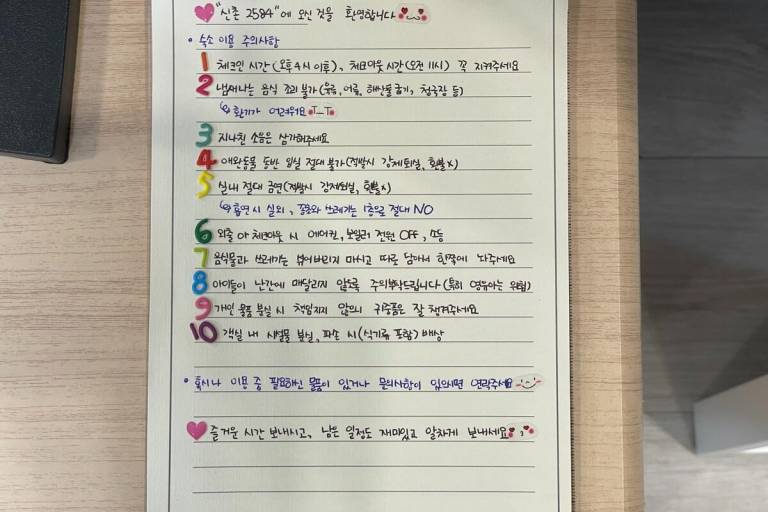 "신촌 2584"에 오신 것을 환영합니다
• 숙소 이용 주의사항
1 체크인 시간(오후 4시 이후), 체크아웃 시간(오전 11시) 꼭 지켜주세요
2 냄새나는 음식 조리 불가(육류, 어류, 해산물 굽기, 청국장 등)
↳ 환기가 어려워요 ㅜ_ㅜ
3 지나친 소음은 삼가해주세요
4 애완동물 동반 입실 절대 불가(적발시 강제퇴실, 환불x)
5 실내 절대 금연(적발시 강제퇴실, 환불x)
↳ 흡연시 실외, 꽁초와 쓰레기는 1층으로 절대 NO
6 외출 아 체크아웃 시 에어컨, 보일러 전원 OFF, 소등
7 음식물과 쓰레기는 뷔어버리지 마시고 따로 담아서 한쪽에 놔주세요
8 아이들이 난간에 매달리지 않도록 주의부탁드립니다(특히 영유아는 위험)
9 개인 물품 분실 시 책임지지 않으니 귀중품은 잘 챙겨주세요
10 객실 내 시설물 분실, 파손 시(식기류 포함) 배상
• 혹시나 이용 중 필요하신 물품이 있거나 문의사항이 있으시면 연락주세요
즐거운 시간 보내시고, 남은 일정도 재미있고 알차게 보내세요